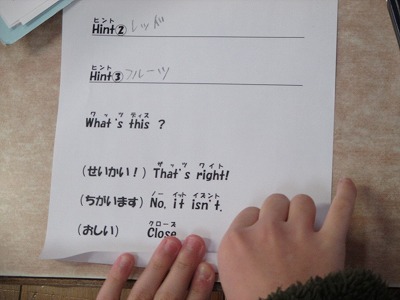 ヒント
Hint② レッド
ヒント
Hint③ フルーツ
ワッツ ディス
What's this ?
ザッツ ワイト
(せいかい!) That's right!
ノー イット イズント
(ちがいます) No, it isn't.
クロース
(おしい) Close